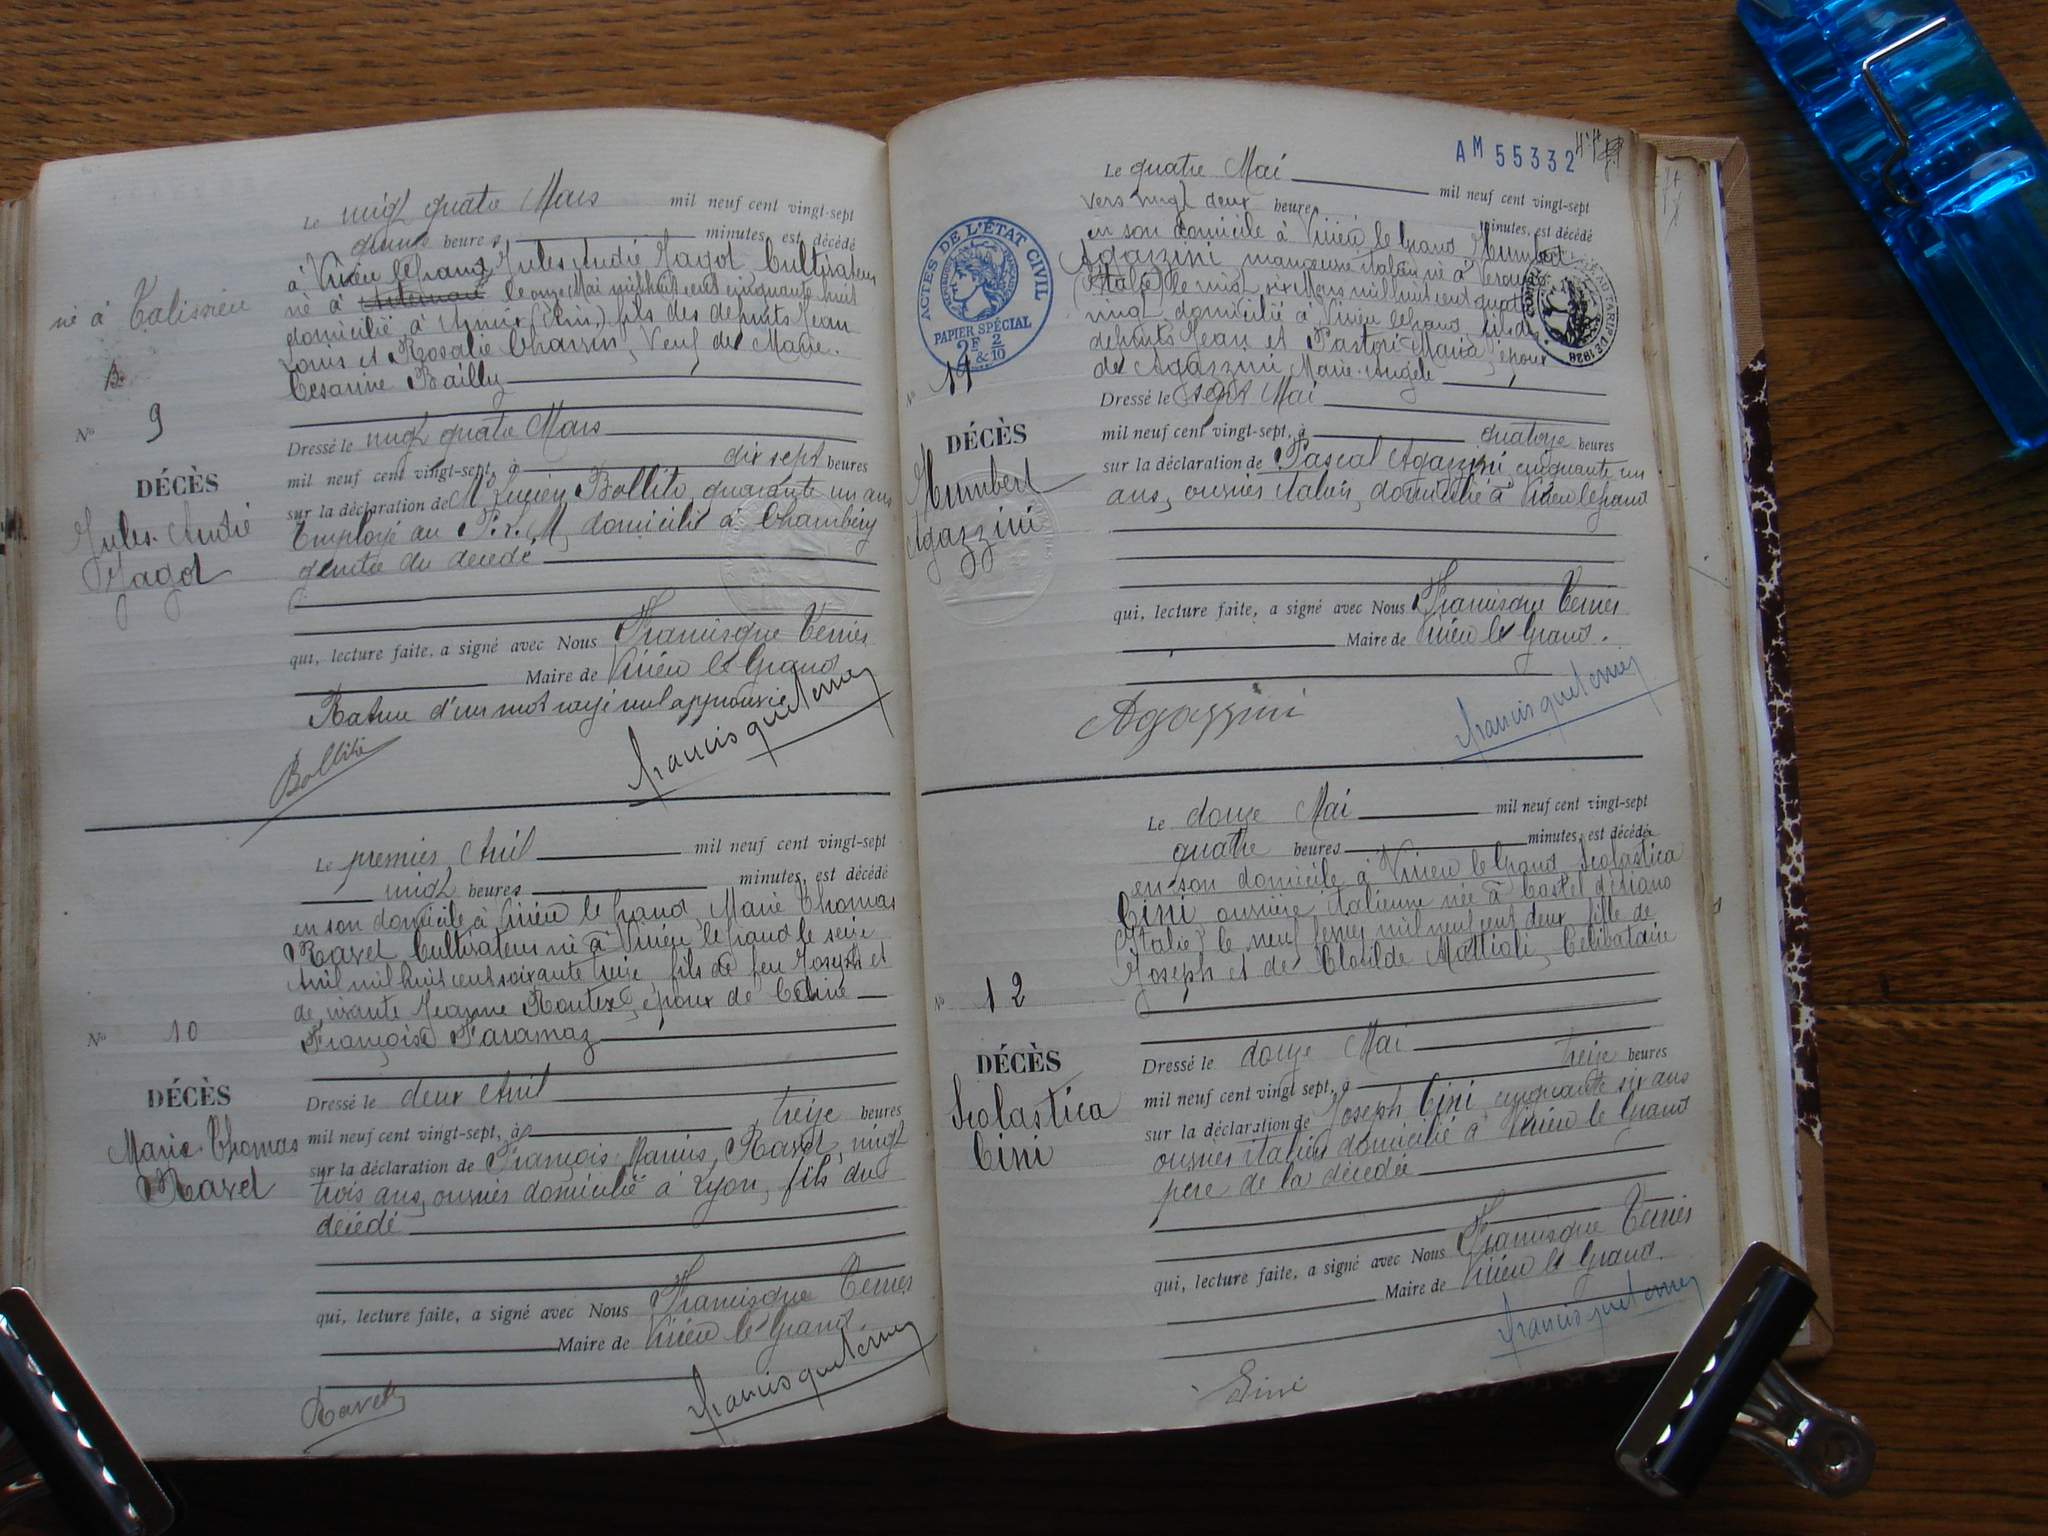 Le vingt quatre Mars mil neuf cent vingt-sept
heures minutes, est décédé
à Virieu le Grand, Jules André Jagot Cultivateur
né à le onze Mai mil huit cent cinquante huit
domicilié à (Ain), fils des défunts Jean
Louis et Rosalie Charvin, Veuf de Marie
Césarine Bailly
né à Talissieu
No 9
DÉCÈS
Jules André
Jagot
Dressé le vingt quatre Mars
mil neuf cent vingt-sept, à dix sept heures
sur la déclaration de M. Lucien Bollito quarante un ans
Employé au P.L.M. domicilié à Chambéry
gendre du décédé
qui, lecture faite, a signé avec Nous Francisque Terrier
Maire de Virieu le Grand
Rature d'un mot rayé nul approuvé
Francisque Terrier
No 10
DÉCÈS
Marie Thomas
Ravet
Le premier Avril mil neuf cent vingt-sept
vingt heures minutes, est décédé
en son domicile à Virieu le Grand, Marie Thomas
Ravet Cultivateur né à Virieu le Grand le seize
Avril mil huit cent soixante treize, fils de feu Joseph et
de vivante Jeanne époux de Céline
Françoise Faramaz
Dressé le deux Avril
mil neuf cent vingt-sept, à treize heures
sur la déclaration de François Marius Ravet, vingt
trois ans, ouvrier domicilié à Lyon, fils du
décédé
qui, lecture faite, a signé avec Nous Francisque Terrier
Maire de Virieu le Grand.
Francisque Terrier
Ravet
AM 55332
ACTES DE L'ÉTAT CIVIL
PAPIER SPÉCIAL
2F 2/10
&
No 11
DÉCÈS
Humbert
Agazzini
Le quatre Mai mil neuf cent vingt-sept
vers vingt deux heures minutes, est décédé
en son domicile à Virieu le Grand Humbert
Agazzini manœuvre italien né à
(Italie) le vingt six Mars mil huit cent quatre
vingt, domicilié à Virieu le Grand, fils des
défunts Jean et Pastori Maria, époux
de Agazzini Marie-Angèle
Dressé le sept Mai
mil neuf cent vingt-sept, à quatorze heures
sur la déclaration de Pascal Agazzini cinquante un
ans, ouvrier italien, domicilié à Virieu le Grand
qui, lecture faite, a signé avec Nous Francisque Terrier
Maire de Virieu le Grand.
Agazzini
Francisque Terrier
No 12
DÉCÈS
Scolastica
Cini
Le douze Mai mil neuf cent vingt-sept
quatre heures minutes, est décédée
en son domicile à Virieu le Grand Scolastica
Cini ouvrière italienne née à Castel
(Italie) le neuf mil neuf cent deux, fille de
Joseph et de Clotilde Mattioli, Célibataire
Dressé le douze Mai
mil neuf cent vingt sept, à treize heures
sur la déclaration de Joseph Cini cinquante six ans
ouvrier italien domicilié à Virieu le Grand
père de la décédée
qui, lecture faite, a signé avec Nous Francisque Terrier
Maire de Virieu le Grand.
Francisque Terrier
Cini